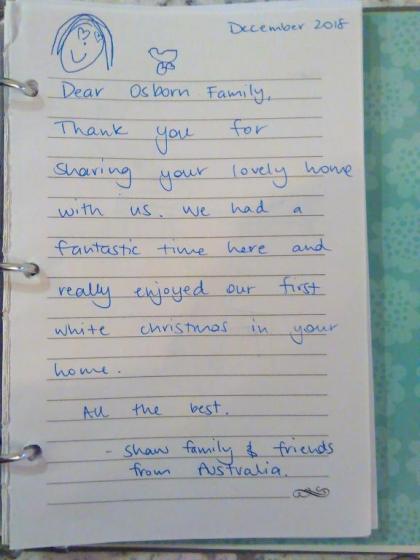 December 2018
Dear Osborn Family,
Thank you for
sharing your lovely home
with us. We had a
fantastic time here and
really enjoyed our first
white christmas in your
home.
All the best.
- Shaw family & friends
from Australia.